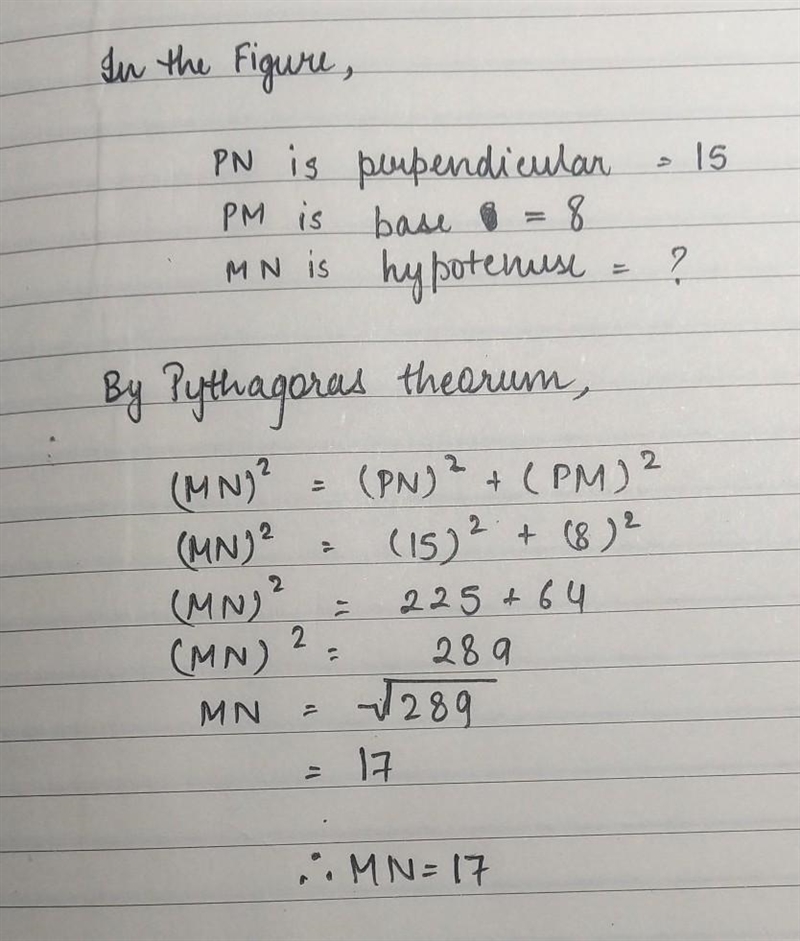 In the Figure,
PN is perpendicular = 15
PM is base = 8
MN is hypotenuse = ?
By Pythagoras thearum,
(MN)² = (PN)² + (PM)²
(MN)² = (15)² + (8)²
(MN)² = 225 + 64
(MN)² = 289
MN = √289
= 17
∴ MN = 17